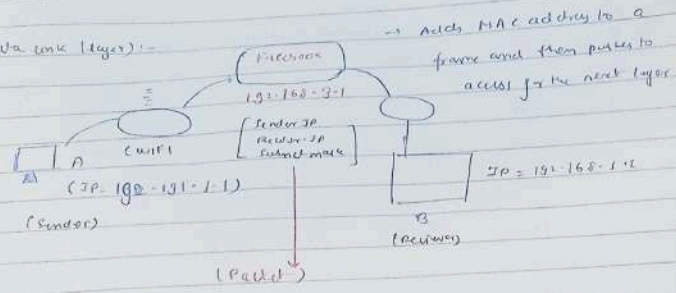 link (layer) :-
→ Adds MAC address to a
frame and then pushes to
access for the next layer
192.168.3.1
[ Sender IP
Receiver IP
Subnet mask ]
(WIFI
A
(IP =
(Sender)
IP = 192.168.1.2
B
(Receiver)
(Packet)